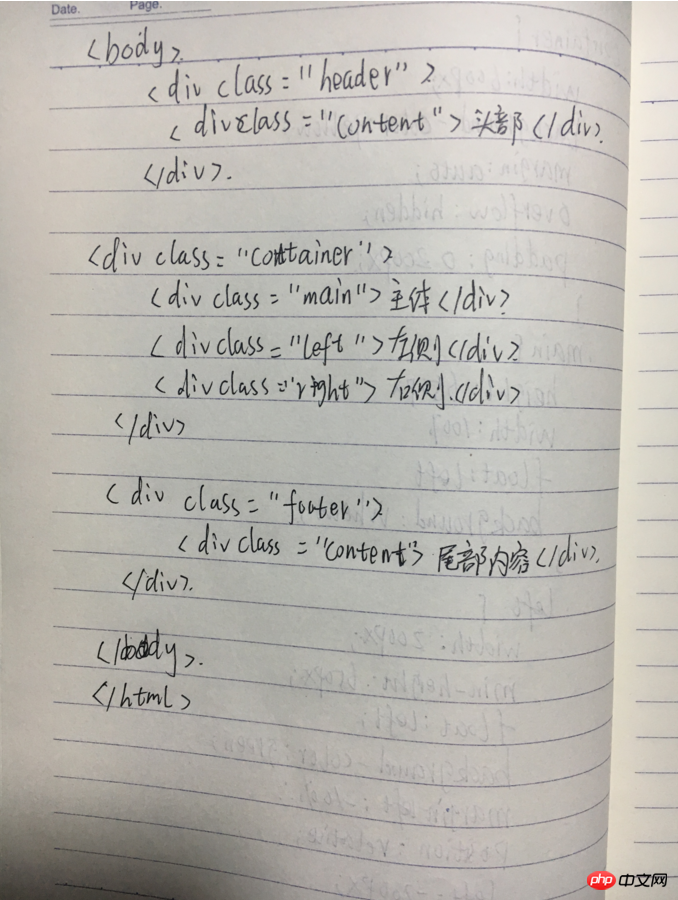 Date.    Page.
<body>
<div class="header">
<div class="content">头部</div>
</div>.
<div class="container">
<div class="main">主体</div>
<div class="left">左侧</div>
<div class="right">右侧</div>
</div>
<div class="footer">
<div class="content">尾部内容</div>.
</div>.
</body>.
</html>
php 中文网